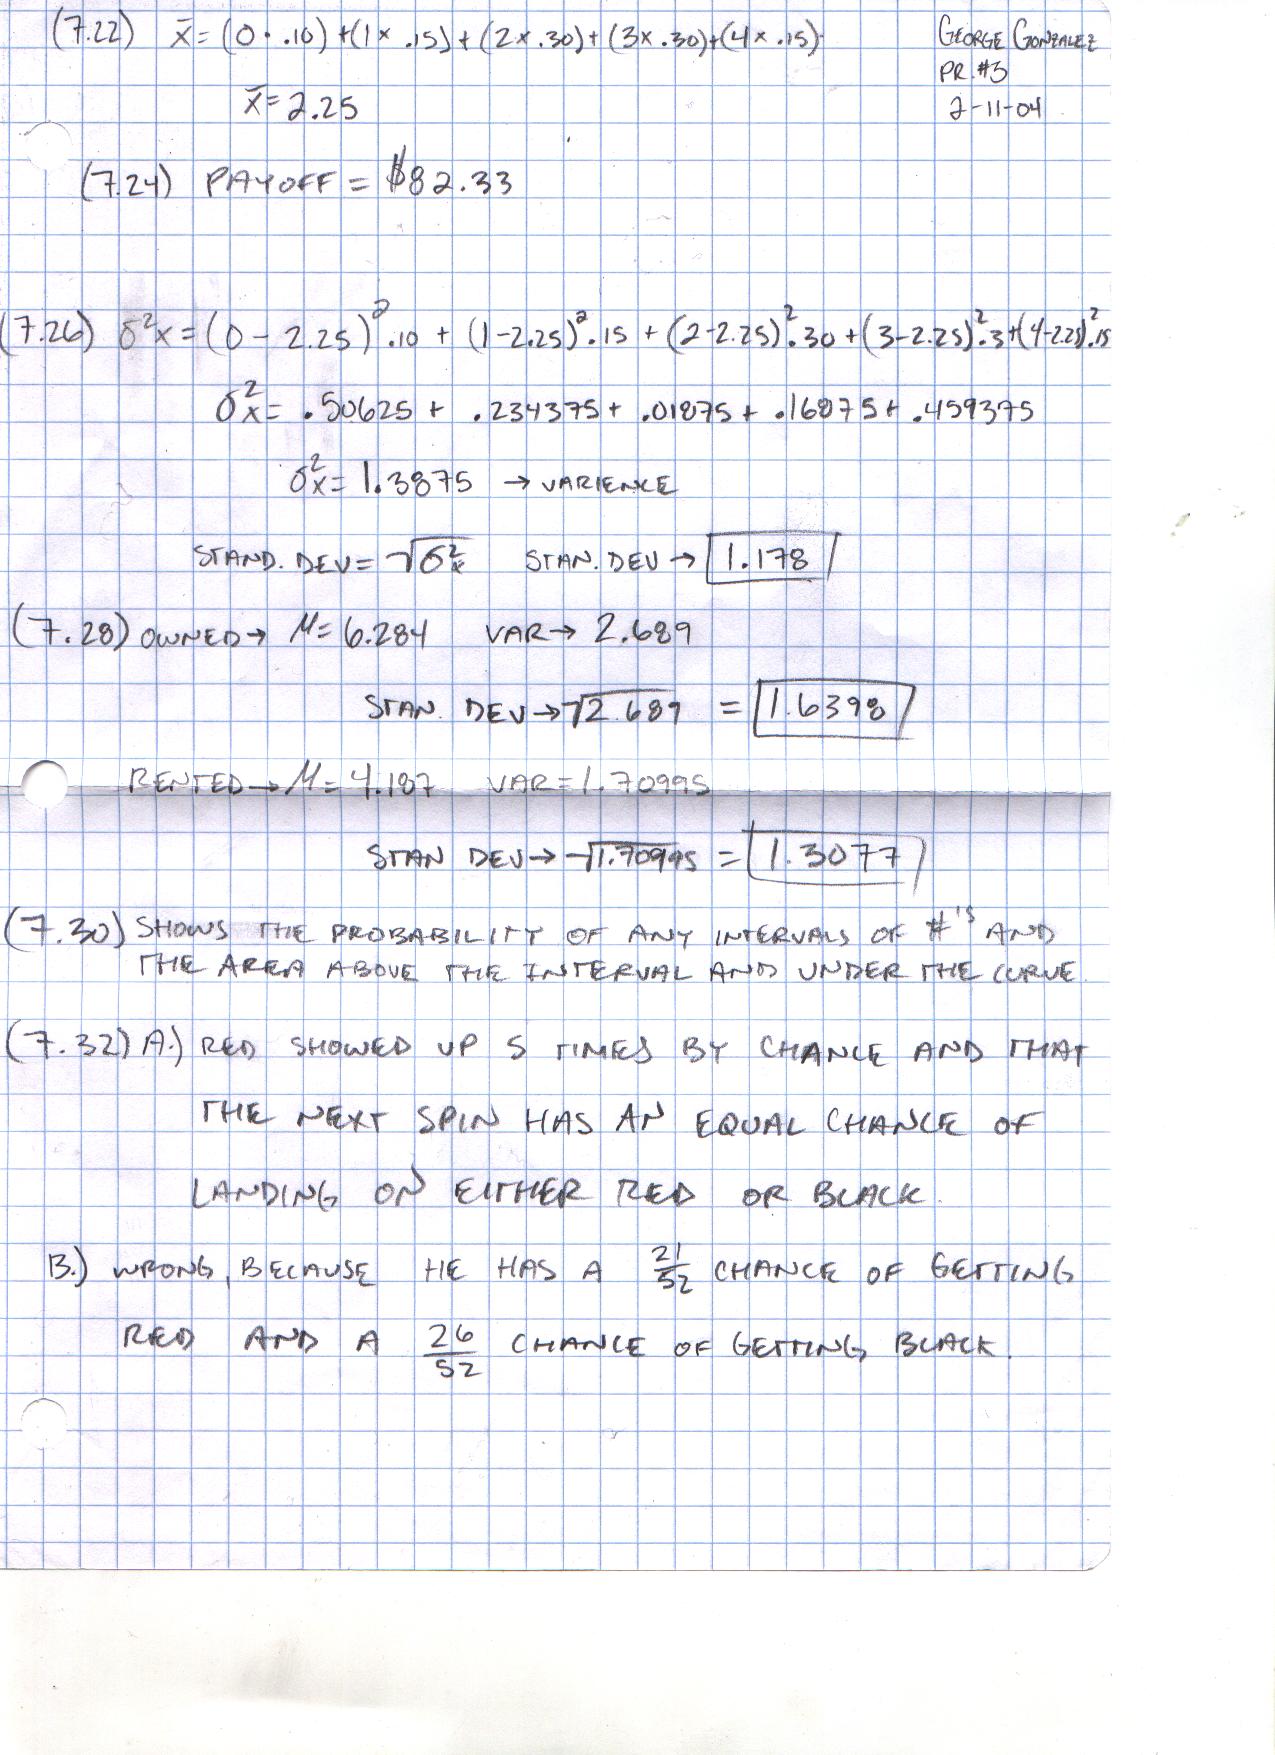 (7.22) x̄ = (0 · .10) + (1 × .15) + (2 × .30) + (3 × .30) + (4 × .15)
GEORGE GONZALEZ
PR. #3
2-11-04
x̄ = 2.25
(7.24) PAYOFF = $82.33
(7.26) σ²x = (0 - 2.25)² .10 + (1-2.25)² .15 + (2-2.25)² .30 + (3-2.25)² .3 + (4-2.25)² .15
σ²x = .50625 + .234375 + .01875 + .16875 + .459375
σ²x = 1.3875 → VARIENCE
STAND. DEV = √σ²x STAN. DEV → 1.178
(7.28) OWNED → μ = 6.284 VAR → 2.689
STAN. DEV → √2.689 = 1.6398
RENTED → μ = 4.187 VAR = 1.70995
STAN DEV → √1.70995 = 1.3077
(7.30) SHOWS THE PROBABILITY OF ANY INTERVALS OF #'S AND
THE AREA ABOVE THE INTERVAL AND UNDER THE CURVE.
(7.32) A.) RED SHOWED UP 5 TIMES BY CHANCE AND THAT
THE NEXT SPIN HAS AN EQUAL CHANCE OF
LANDING ON EITHER RED OR BLACK.
B.) WRONG, BECAUSE HE HAS A 21/52 CHANCE OF GETTING
RED AND A 26/52 CHANCE OF GETTING BLACK.